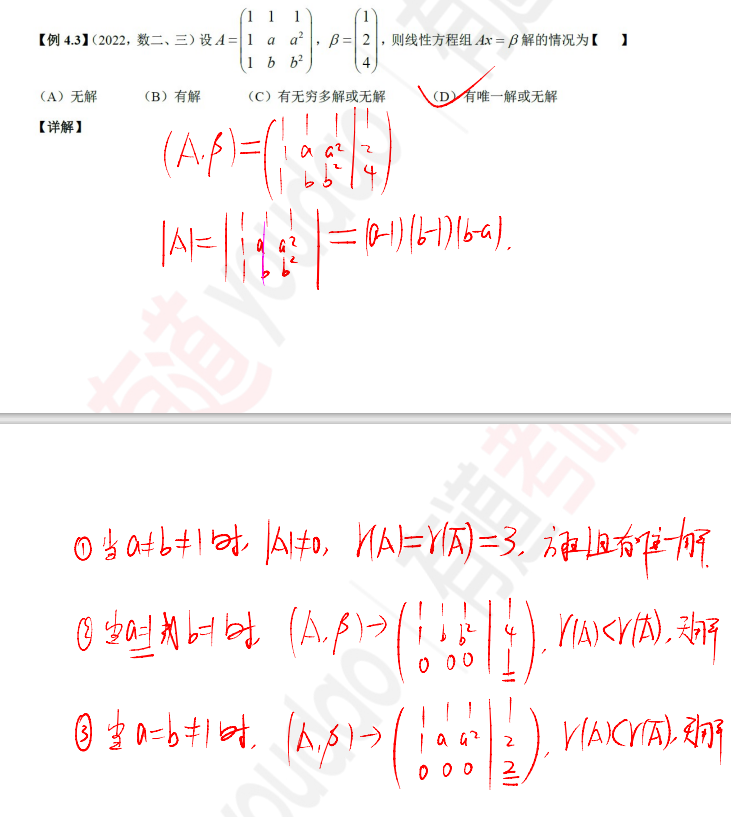 【例 4.3】(2022, 数二、三) 设 A = \begin{pmatrix} 1 & 1 & 1 \\ 1 & a & a^2 \\ 1 & b & b^2 \end{pmatrix}, β = \begin{pmatrix} 1 \\ 2 \\ 4 \end{pmatrix}, 则线性方程组 Ax = β 解的情况为【 】
(A) 无解 (B) 有解 (C) 有无穷多解或无解 (D) 有唯一解或无解
【详解】
(A,β)=\left(\begin{array}{ccc|c} 1 & 1 & 1 & 1 \\ 1 & a & a^2 & 2 \\ 1 & b & b^2 & 4 \end{array}\right)
|A|=\begin{vmatrix} 1 & 1 & 1 \\ 1 & a & a^2 \\ 1 & b & b^2 \end{vmatrix}=(a-1)(b-1)(b-a).
① 当a≠b≠1时, |A|≠0, r(A)=r(Ā)=3. 方程组有唯一解.
② 当a=1或b=1时, (A,β)→\left(\begin{array}{ccc|c} 1 & 1 & 1 & 1 \\ 1 & b & b^2 & 4 \\ 0 & 0 & 0 & 1 \end{array}\right), r(A)<r(Ā), 无解
③ 当a=b≠1时, (A,β)→\left(\begin{array}{ccc|c} 1 & 1 & 1 & 1 \\ 1 & a & a^2 & 2 \\ 0 & 0 & 0 & 2 \end{array}\right), r(A)<r(Ā), 无解
有道 youdao
有道考研
youdao